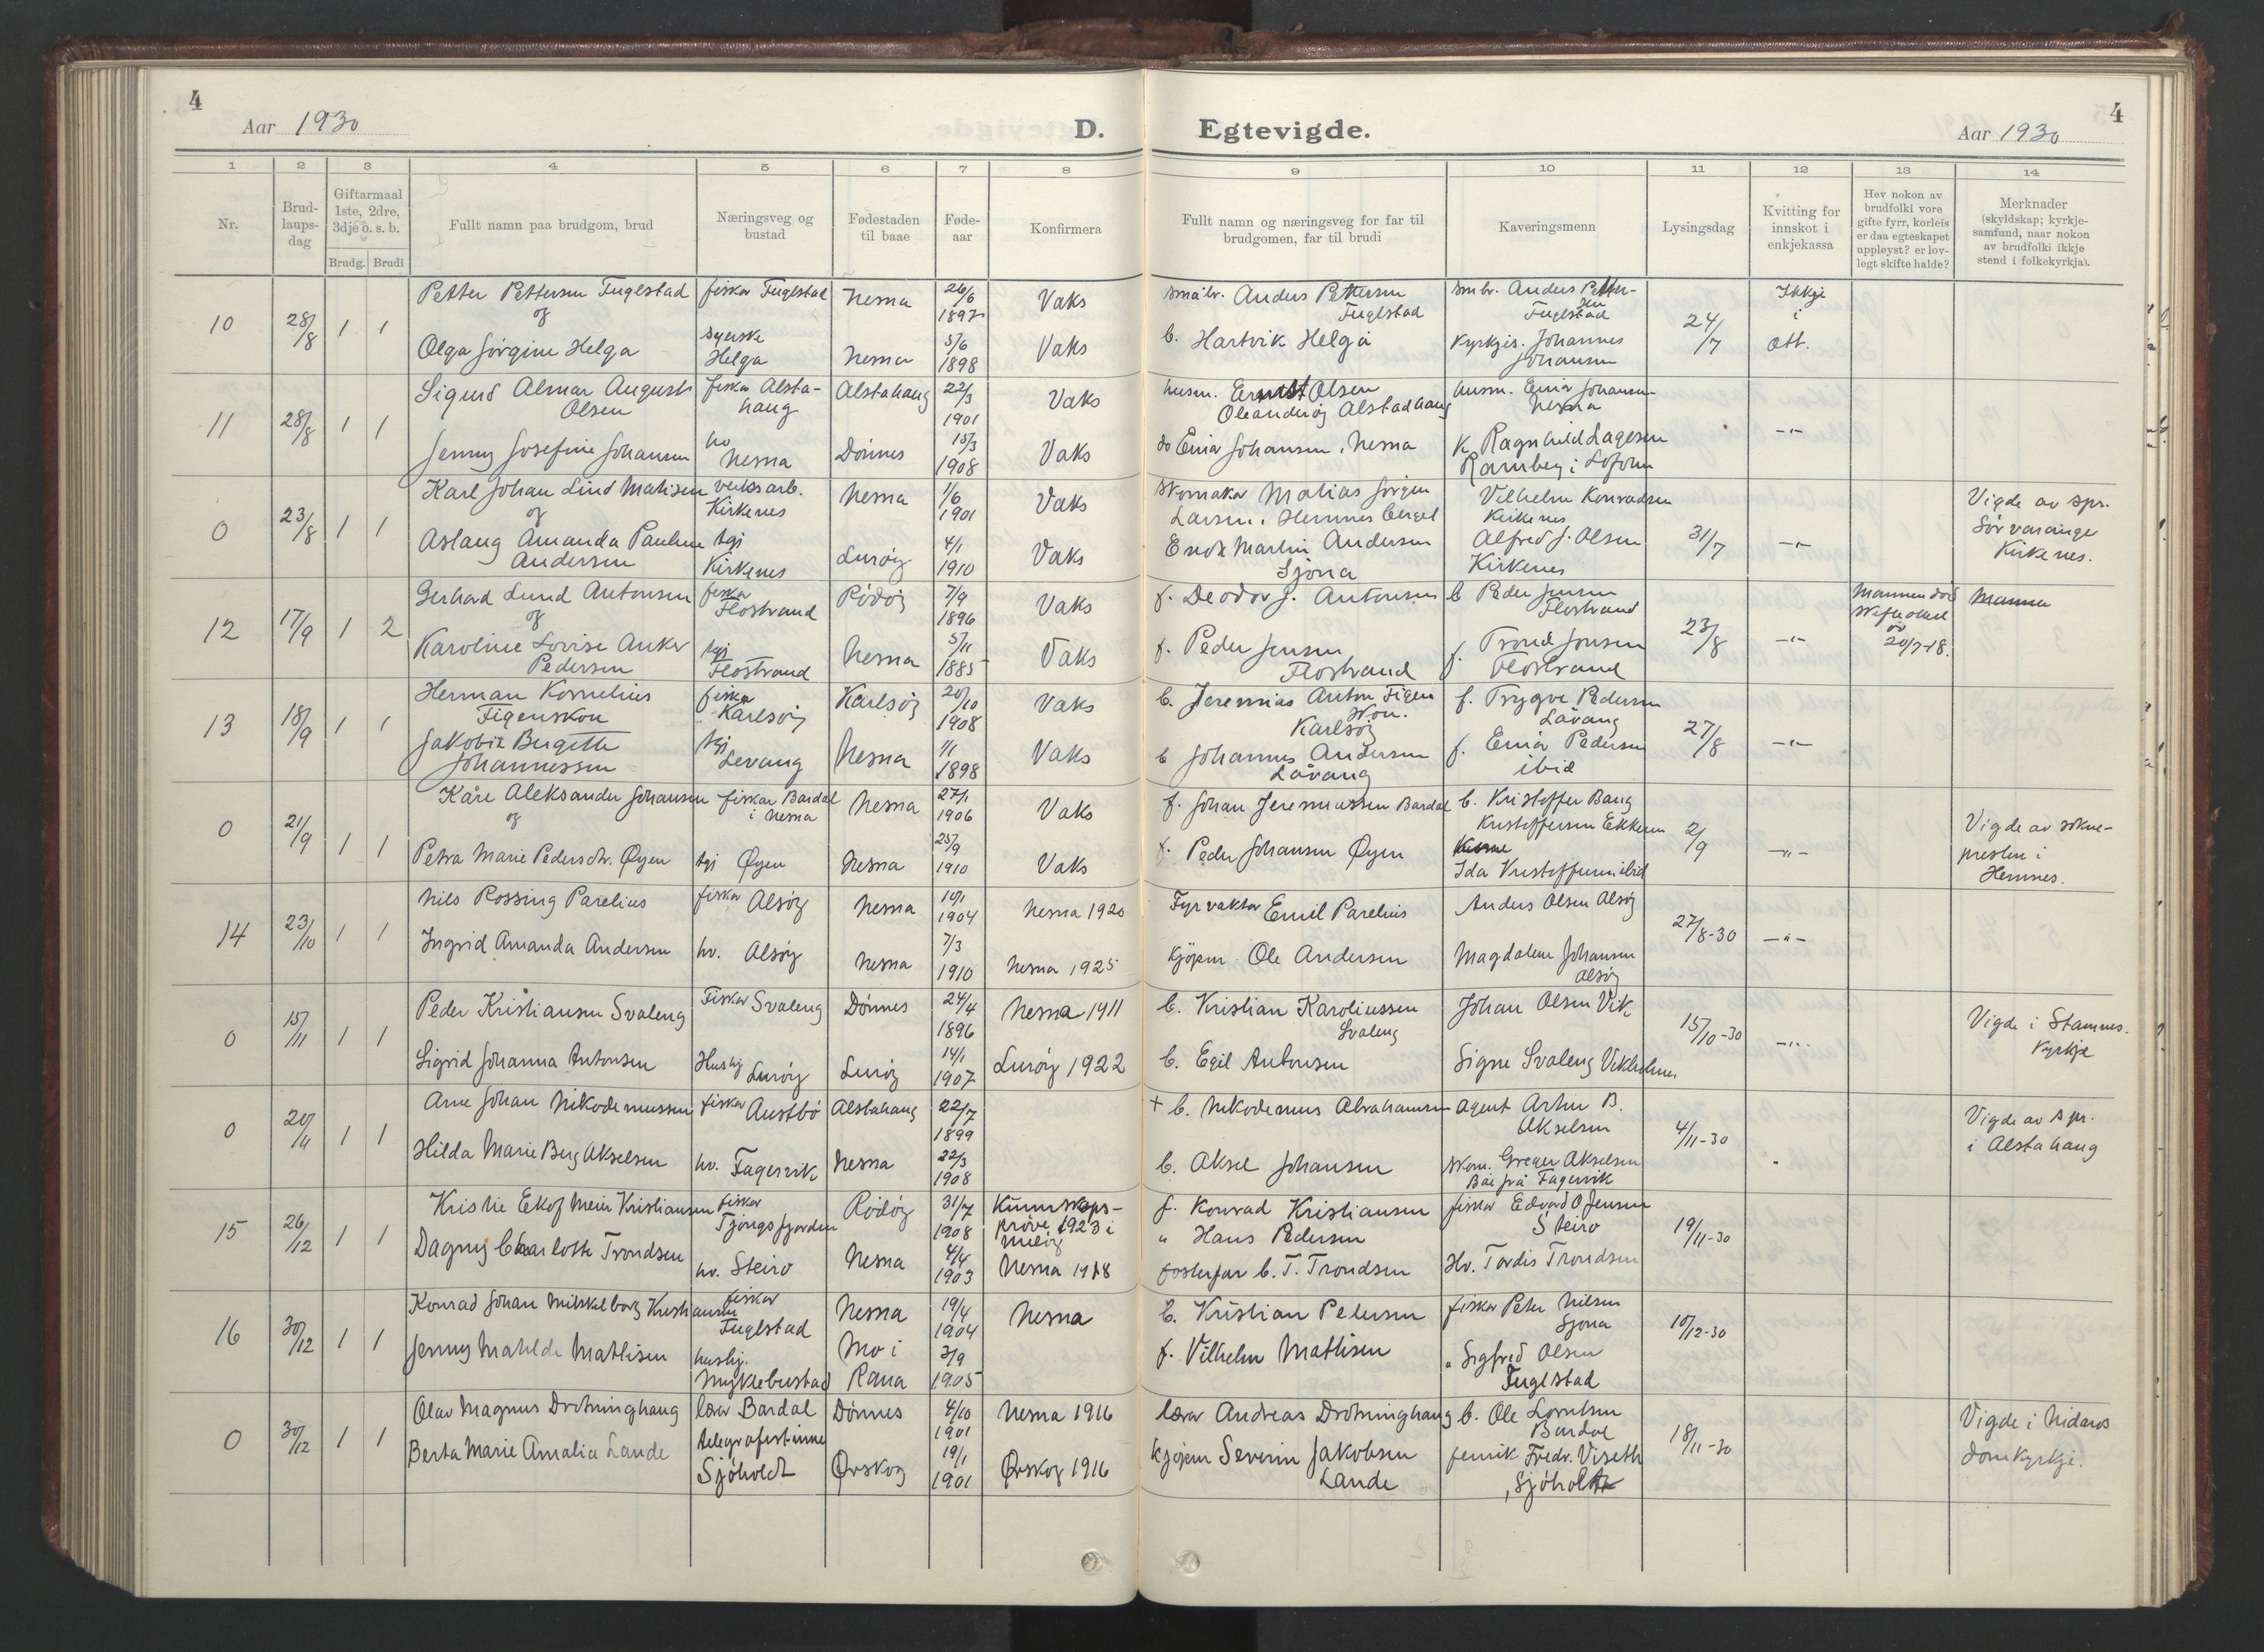 4
Aar 1930
D.
1 2 3 4 5 6 7 8
Nr.
Brud-
laups-
dag
Giftarmaal
1ste, 2dre,
3dje o. s. b.
Brudg. Brudi
Fullt namn paa brudgom, brud
Næringsveg og
bustad
Fødestaden
til baae
Føde-
aar
Konfirmera
10 28/8 1 1
Petter Pettersen Fuglstad fiskar Fuglstad Nesna 26/6 1897 Vaks
og
Olga Jørgine Helga syerske Helga Nesna 5/6 1898 Vaks
11 28/8 1 1
Sigurd Almar August fiskar Alsta- Alstahaug 22/3 1901 Vaks
Olsen haug
Jenny Josefine Johansen hv Nesna Dönnes 15/3 1908 Vaks
0 23/8 1 1
Karl Johan Lind Matisen verksarb. Kirkenes Nesna 1/6 1901 Vaks
og
Aslaug Amanda Pauline tgj Kirkenes Lurøy 4/1 1910 Vaks
Andersen
12 17/9 1 2
Gerhard Lund Antonsen fiskar Flostrand Rödöy 7/9 1896 Vaks
og
Karoline Lovise Anker tgj Flostrand Nesna 5/11 1885 Vaks
Pedersen
13 18/9 1 1
Herman Kornelius fiskar Karlsöy Karlsöy 20/10 1908 Vaks
Figenskou
Jakobie Bergitte tgj Levang Nesna 1/1 1898 Vaks
Johannessen
0 21/9 1 1
Kåre Aleksander Johansen fiskar Bardal i Nesna Nesna 27/1 1906 Vaks
og
Petra Marie Pedersdtr. Øyen tgj Øyen Nesna 25/9 1910 Vaks
14 23/10 1 1
Nils Rossing Parelius fiskar Alsöy Nesna 10/1 1904 Nesna 1920
Ingrid Amanda Andersen hv. Alsöy Nesna 7/3 1910 Nesna 1925
0 15/11 1 1
Peder Kristiansen Svaleng Fiskar Svaleng Dönnes 24/4 1896 Nesna 1911
Sigrid Johanna Antonsen Hushj Luröy Luröy 14/1 1907 Luröy 1922
0 20/11 1 1
Arne Johan Nikodemussen fiskar Austbö Alstahaug 22/7 1899
Hilda Marie Berg Akselsen hv. Fagervik Nesna 22/3 1908
15 26/12 1 1
Kristie Ekof Mein Kristiansen fiskar Tjongsfjorden Rödöy 31/7 1908 Kunnskaps-
pröve 1923 i
Melöy
Dagny Charlotte Trondsen hv. Steiro Nesna 4/4 1903 Nesna 1918
16 30/12 1 1
Konrad Johan Mikkelborg Kristiansen fiskar Fuglstad Nesna 19/4 1904 Nesna
Jenny Mahilde Mathisen hushj. Myklebustad Mo i Rana 3/9 1905
0 30/12 1 1
Olav Magnus Drotninghaug lærar Bardal Dönnes 4/10 1901 Nesna 1916
Berta Marie Amalia Lande telegrafistinne Sjöholt Ørskog 19/1 1901 Ørskog 1916
4
Egtevigde.
Aar 1930
9 10 11 12 13 14
Fullt namn og næringsveg for far til
brudgomen, far til brudi
Kaveringsmenn
Lysingsdag
Kvitting for
innskot i
enkjekassa
Hev nokon av
brudfolki vore
gifte fyrr, korleis
er daa egteskapet
uppløyst? er lov-
legt skifte halde?
Merknader
(skyldskap; kyrkje-
samfund, naar nokon
av brudfolki ikkje
stend i folkekyrkja).
småbr. Anders Pettersen Fuglstad smbr. Anders Petter-
sen Fuglstad 24/7 Ikkje
i
att.
b. Hartvik Helga Kyrkjes. Johannes
Johansen
husm. Ernst Olsen husm. Einar Johansen
Oleanderöy Alstadhaug Nesna -"-
do Einar Johansen, Nesna K Ragnhild Lagesen
Ramberg i Lofoten
Skomaker Matias Jörgen Vilhelm Konradsen
Larsen, Hemnesberget Kirkenes 31/7 -"- Vigde av spr.
Sör varanger
Kirkenes.
Enok Martin Andersen Alfred J. Olsen
Sjona Kirkenes
f. Deodor J. Antonsen b Peder Jensen
Flostrand 23/8 -"- Mannen död
20/7-18.
f. Peder Jensen f. Trond Jonsen
Flostrand Flostrand
b. Jeremias Anton Figen f. Trygve Pedersen
skou. Karlsöy Låvang 27/8 -"-
b Johannes Andersen f. Einar Pedersen
Låvang ibid
f. Johan Jeremiassen Bardal b. Kristoffer Bang
Kristoffersen Ekkeren 2/9 -"- Vigde av sokne-
presten i
Hemnes.
f. Peder Johansen Øyen
Ida Kristoffersen ibid
Fyrvaktar Emil Parelius Anders Olsen Alsöy 27/8-30 -"-
kjöpm. Ole Andersen Magdalene Johansen
Alsöy
b. Kristian Karoliussen Johan Olsen Vik
Svaleng 15/10-30 -"- Vigde i Stamnes.
Kyrkje
b. Egil Antonsen Signe Svaleng Vikholmen
+ b. Nikodemus Abrahamsen Agent Arthur B.
Akselsen 4/11-30 Vigde av spr.
i Alstahaug
b. Aksel Johansen skom. Greger Akselsen
Båe frå Fagervik
f. Konrad Kristiansen fiskar Edvard O Jensen
Steiro 19/11-30
" Hans Pedersen
fosterfar b. T. Trondsen Hv. Tordis Trondsen
b. Kristian Petersen fiskar Peter Nilsen
Sjona 10/12-30
f. Vilhelm Mathisen " Sigfred Olsen
Fuglstad
lærar Andreas Drotninghaug b. Ole Lorntsen
Bardal 18/11-30 Vigde i Nidaros
domkyrkje.
kjöpm Severin Jakobsen fenrik Fredr. Viseth
Lande , Sjöholt